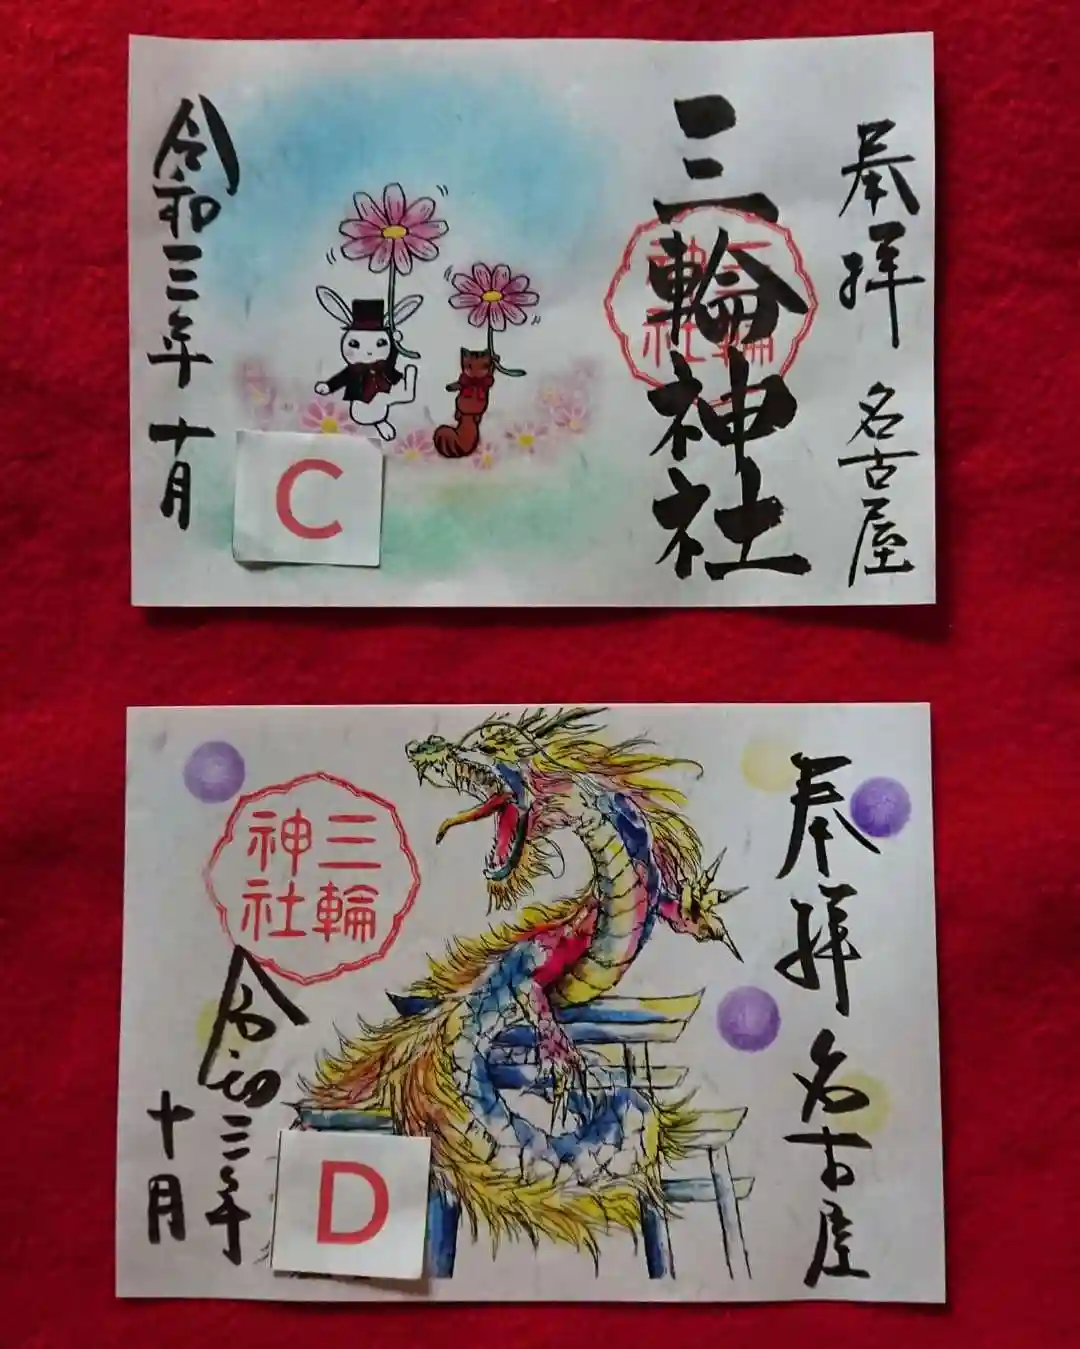 奉拝 名古屋
三輪神社
三輪神社
令和三年 十月
C
奉拝 名古屋
三輪神社
令和三年
十月
D